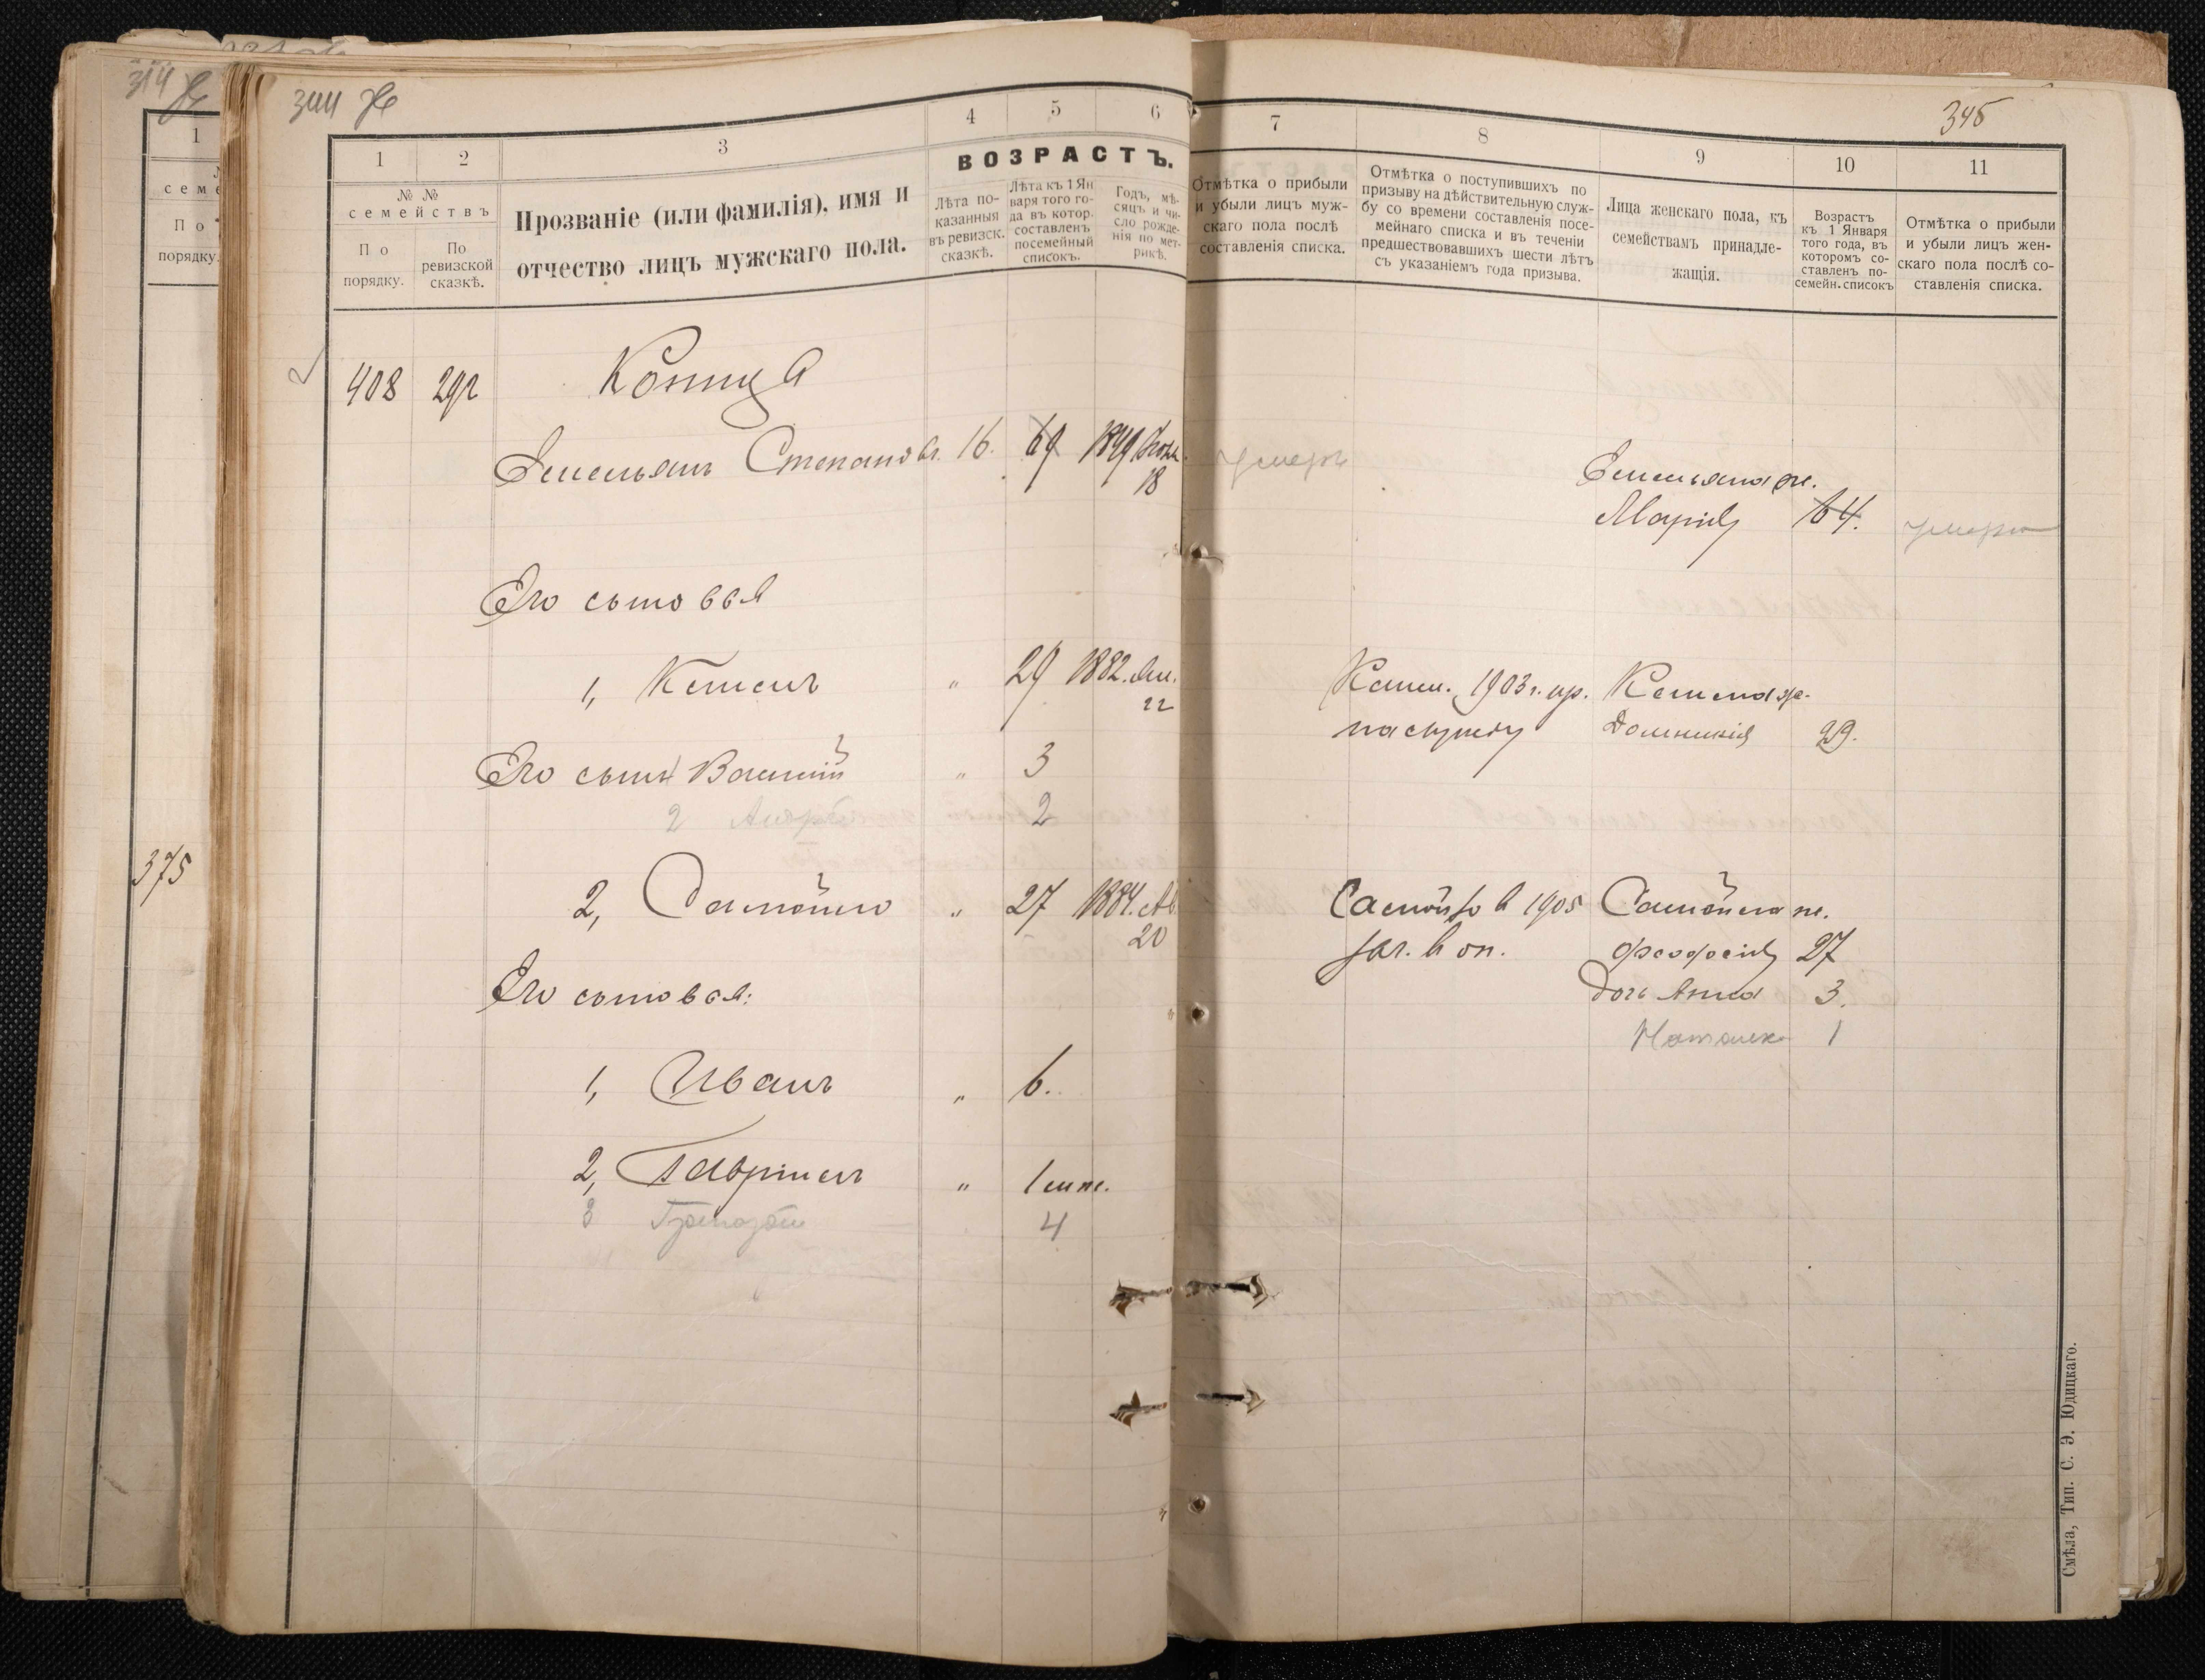 314
344 Ж
345
1
2
3
4
5
6
7
8
9
10
11
№ №
семействъ
По
порядку.
По
ревизской
сказкѣ.
Прозваніе (или фамилія), имя и
отчество лицъ мужскаго пола.
ВОЗРАСТЪ.
Лѣта по-
казанныя
въ ревизск.
сказкѣ.
Лѣта къ 1 Ян
варя того го-
да въ котор.
составленъ
посемейный
списокъ.
Годъ, мѣ-
сяцъ и чи-
сло рожде-
нія по мет-
рикѣ.
Отмѣтка о прибыли
и убыли лицъ муж-
скаго пола послѣ
составленія списка.
Отмѣтка о поступившихъ по
призыву на дѣйствительную служ-
бу со времени составленія посе-
мейнаго списка и въ теченіи
предшествовавшихъ шести лѣтъ
съ указаніемъ года призыва.
Лица женскаго пола, къ
семействамъ принадле-
жащія.
Возрастъ
къ 1 Января
того года, въ
которомъ со-
ставленъ по-
семейн. списокъ
Отмѣтка о прибыли
и убыли лицъ жен-
скаго пола послѣ со-
ставленія списка.
1
семе
По
порядку.
375
408 292 Коница
Емельянъ Степановъ. 16. 69 1849
18
умеръ
Емельяна ж.
Марія 64. умерла
Его сыновья
1, Климъ " 29 1882. Ян.
22
1903 г. пр.
Клима ж.
Домникія 29.
Его сынъ Василій " 3
2 Андрей 2
2, Самойло " 27 1884. Ав.
20
Самойло в 1905
зач. в оп.
Самойла ж.
Феодосія 27
Дочь Анна 3.
Наталка 1
Его сыновья:
1, Иванъ " 6.
2, Гавріилъ " 1 мѣс.
3 Григорій 4
Смѣла, Тип. С. Э. Юдицкаго.